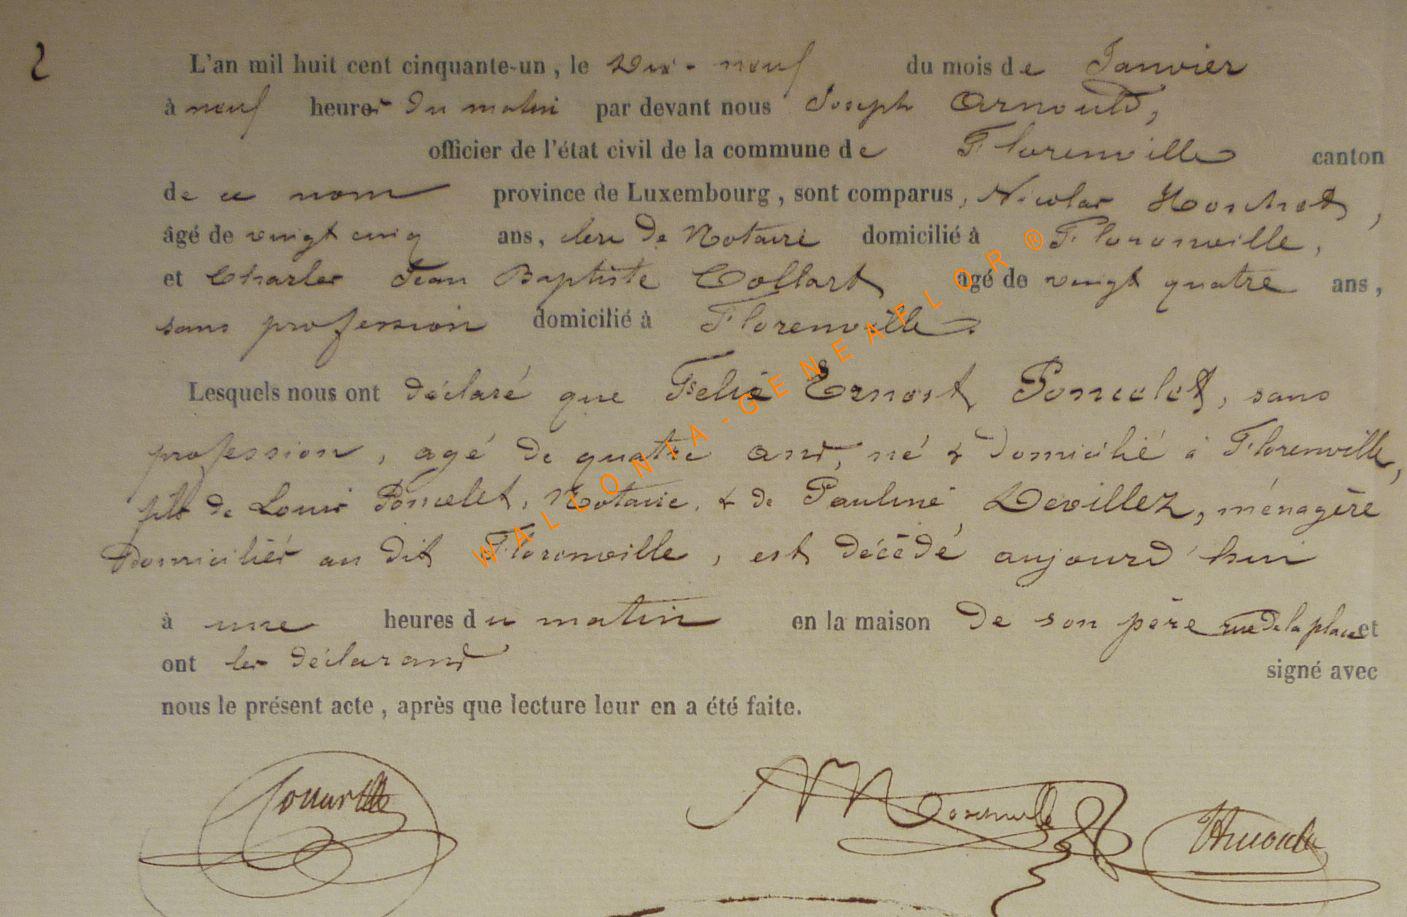 2
L'an mil huit cent cinquante-un, le Dix-neuf du mois de Janvier
à neuf heures du matin par devant nous Joseph Arnould,
officier de l'état civil de la commune de Florenville canton
de ce nom province de Luxembourg, sont comparus, Nicolas
âgé de vingt cinq ans, clerc de Notaire domicilié à Florenville,
et Charles Jean Baptiste Collart agé de vingt quatre ans,
sans profession domicilié à Florenville.
Lesquels nous ont déclaré que Felix Ernest Poncelet, sans
profession, agé de quatre ans, né & domicilié à Florenville,
fils de Louis Poncelet, Notaire, & de Pauline Devillez, ménagère
Domiciliés au dit Florenville, est décédé aujourd'hui
à une heures du matin en la maison de son père rue de la place et
ont les déclarans signé avec
nous le présent acte, après que lecture leur en a été faite.
WALLONIA-GENEAFLOR®